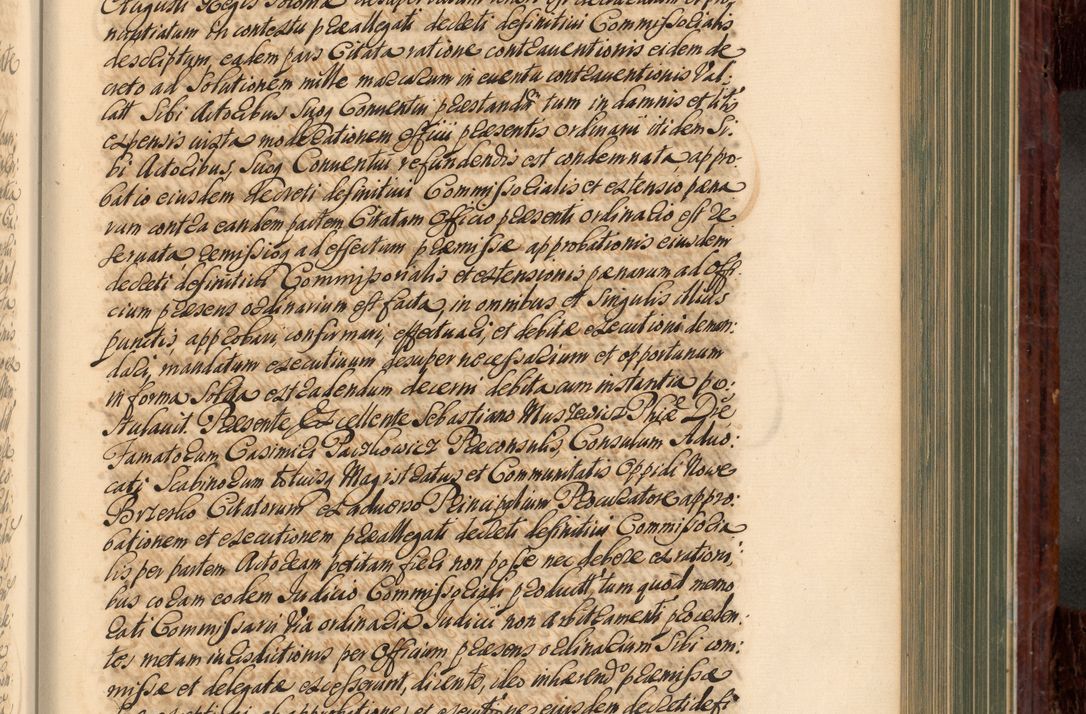 nuntiatum in contextu præallegati decreti definitivi Commissorialis
descriptum, eadem pars Citata ratione contraventionis eidem de
creto ad Solutionem mille marcarum in eventu contraventionis Val:
latt Sibi Actoribus Suoq Conventui præstandã tum in damnis et litis
expensis iuxta moderationem officii præsentis ordinarii itidem Si:
bi Actoribus, Suoq Conventui refundendis est condemnata, appro:
batio eiusdem decreti definitivi Commissorialis et extensio pæna
rum contra eandem partem Citatam officio præsenti ordinario est re
servata remissioq ad effectum præmissæ approbationis eiusdem
decreti definitivi Commissorialis et extensionis pænarum ad offi:
cium præsens ordinarium est facta, in omnibus et singulis illius
punctis approbari, confirmari, effectuari, et debitæ executioni deman:
dari, mandatum executivum desuper necessarium et opportunum
in forma Solita extradendum decerni debita cum instantia po:
stulavit. Præsente, Excellente Sebastiano Phiæ Dre
Famatorum Casimiri Præconsulis, Consulum Advo:
cati Scabinorum totiusq Magistratus et Communitatis Oppidi Nowe
Brzesko Citatorum ex adverso Principalium Procuratore appro:
bationem et executionem præallegati decreti definitivi Commissoria
lis per partem Actoream petitam fieri non posse nec debere ex rationi:
bus coram eodem Iudicio Commissoriali productt, tum quod memo
rati Commissarii Via ordinaria Iudicii non arbitramenti proceden:
tes metam iurisdictionis per officium præsens ordinarium Sibi com:
missæ et delegatæ excesserunt, dicente, ideo inhærendo præmissæ